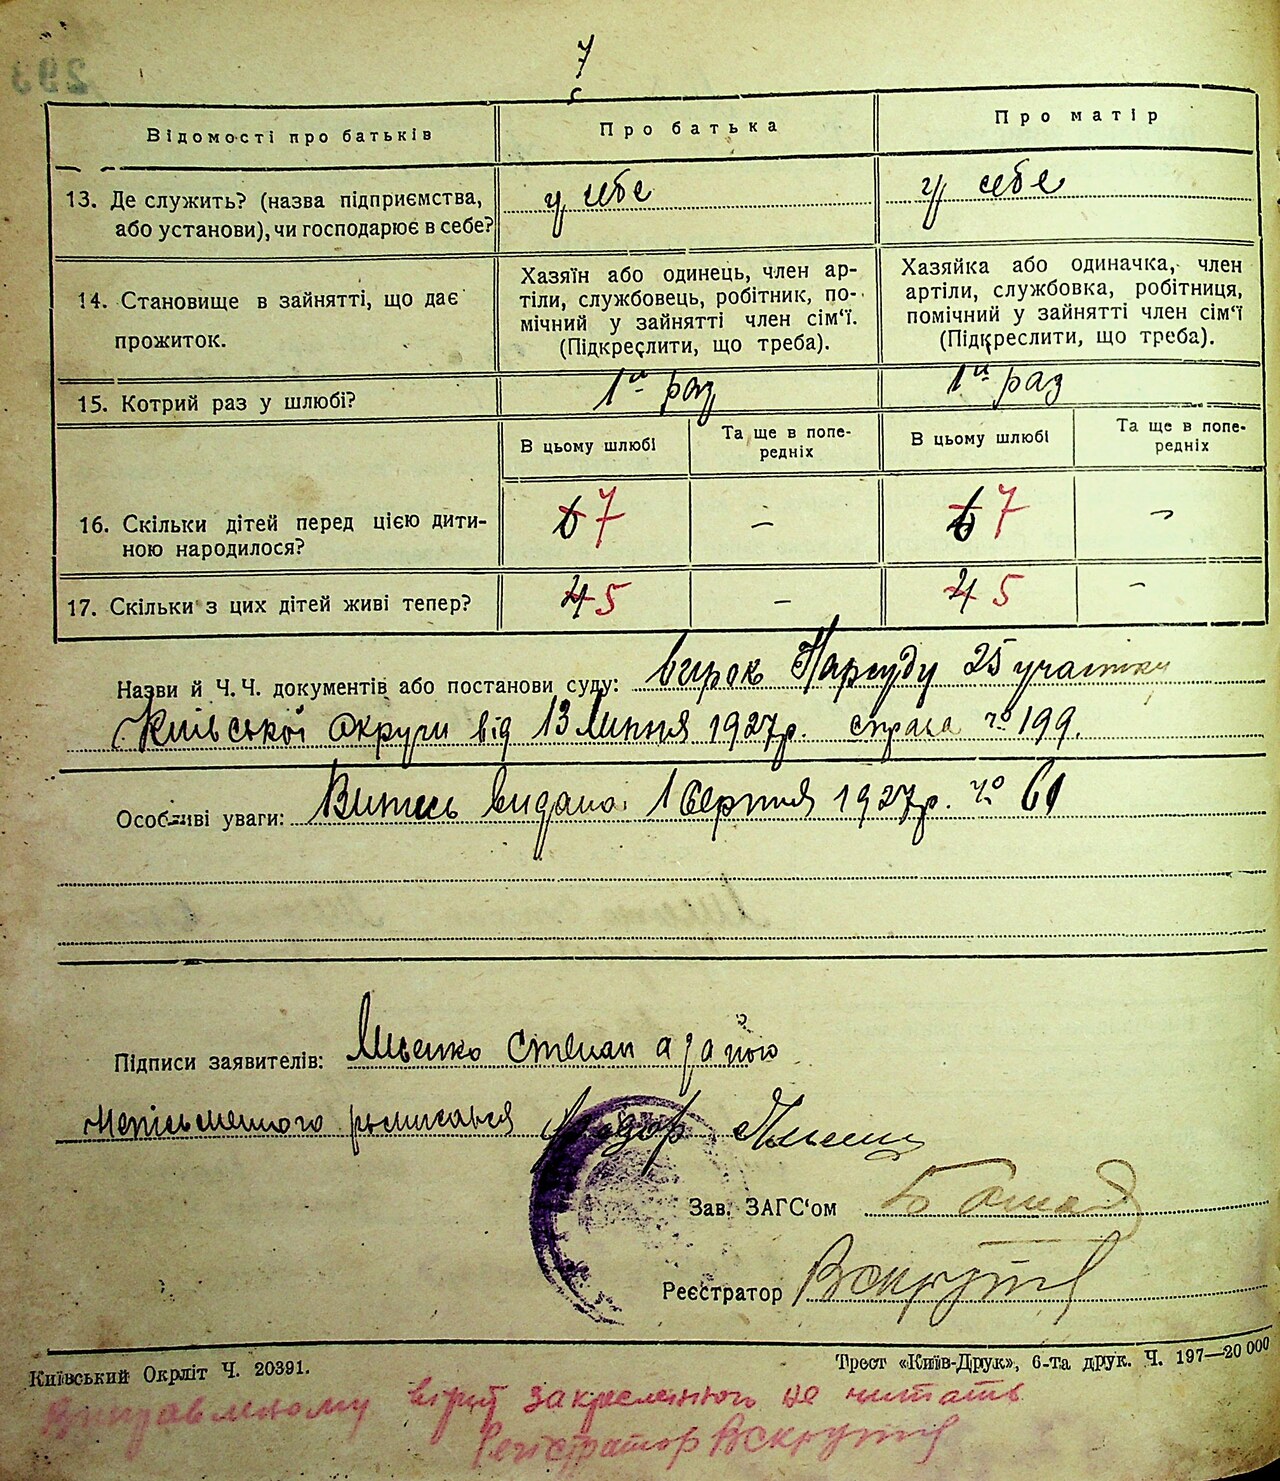 7
Відомості про батьків
Про батька
Про матір
13. Де служить? (назва підприємства,
або установи), чи господарює в себе?
у себе
у себе
14. Становище в зайнятті, що дає
прожиток.
Хазяїн або одинець, член ар-
тіли, службовець, робітник, по-
мічний у зайнятті член сім'ї.
(Підкреслити, що треба).
Хазяйка або одиначка, член
артіли, службовка, робітниця,
помічний у зайнятті член сім'ї
(Підкреслити, що треба).
15. Котрий раз у шлюбі?
1й раз
1й раз
В цьому шлюбі
Та ще в попе-
редніх
В цьому шлюбі
Та ще в попе-
редніх
16. Скільки дітей перед цією дити-
ною народилося?
6 7
–
6 7
–
17. Скільки з цих дітей живі тепер?
4 5
–
4 5
–
Назви й Ч. Ч. документів або постанови суду: вирок Нарсуду 25 участку
Київської округи від 13 Липня 1927 р. справа чо 199.
Особливі уваги: Витяг видано 1 Серпня 1927 р. чо 61
Підписи заявителів: Лисенко Степан а за його
неписьменного росписався
Зав. ЗАГС'ом
Реєстратор
Київський Окрліт Ч. 20391.
Трест «Київ-Друк», 6-та друк. Ч. 197—20 000
Виправленому вірить закресленого не читать
Регістратор